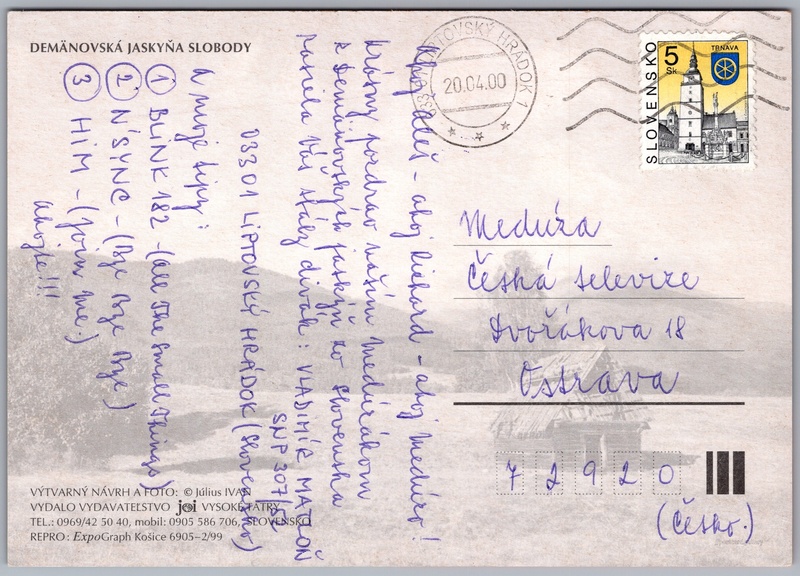 DEMÄNOVSKÁ JASKYŇA SLOBODY
Ahoj Aleš - ahoj Richard - ahoj Medúzo!
Krásny pozdrav našim Medúzákom
z Demänovských jaskýň zo Slovenska
posiela Váš stály divák: VLADIMÍR
SNP 307/
03301 LIPTOVSKÝ HRÁDOK (Slovensko)
A moje tipy:
1 BLINK 182 - (All The Small Things)
2 N'SYNC - (Bye Bye Bye)
3 HIM - (Join me.)
Ahojte!!!
033 01 LIPTOVSKÝ HRÁDOK 1
20.04.00
SLOVENSKO
5 Sk
TRNAVA
Medúza
Česká televize
Dvořákova 18
Ostrava
72920
(Česko.)
VÝTVARNÝ NÁVRH A FOTO: © Július IVAN
VYDALO VYDAVATEĽSTVO joi VYSOKÉ TATRY
TEL.: 0969/42 50 40, mobil: 0905 586 706, SLOVENSKO
REPRO: ExpoGraph Košice 6905–2/99